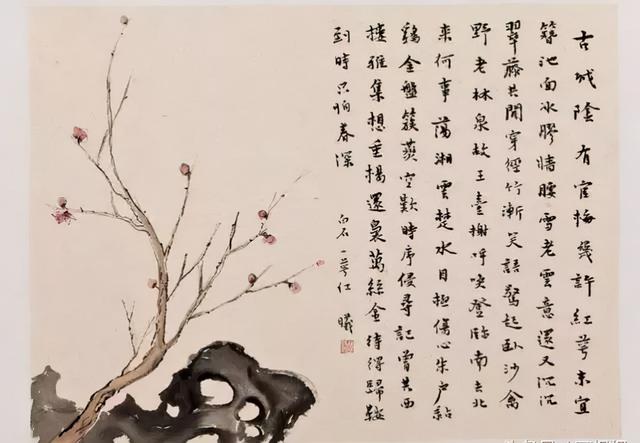 古城陰有官梅幾許紅萼未宜
簪池面冰膠墻腰雪老雲意還又沉沉
翠藤共閒穿徑竹漸笑語驚起臥沙禽
野老林泉故王臺榭呼喚登臨南去北
來何事蕩湘雲楚水目極傷心朱戶黏
鷄金盤簇燕空歎時序侵尋記曾共西
樓雅集想垂楊還裊萬絲金待得歸鞍
到時只怕春深
白石一萼紅 曦